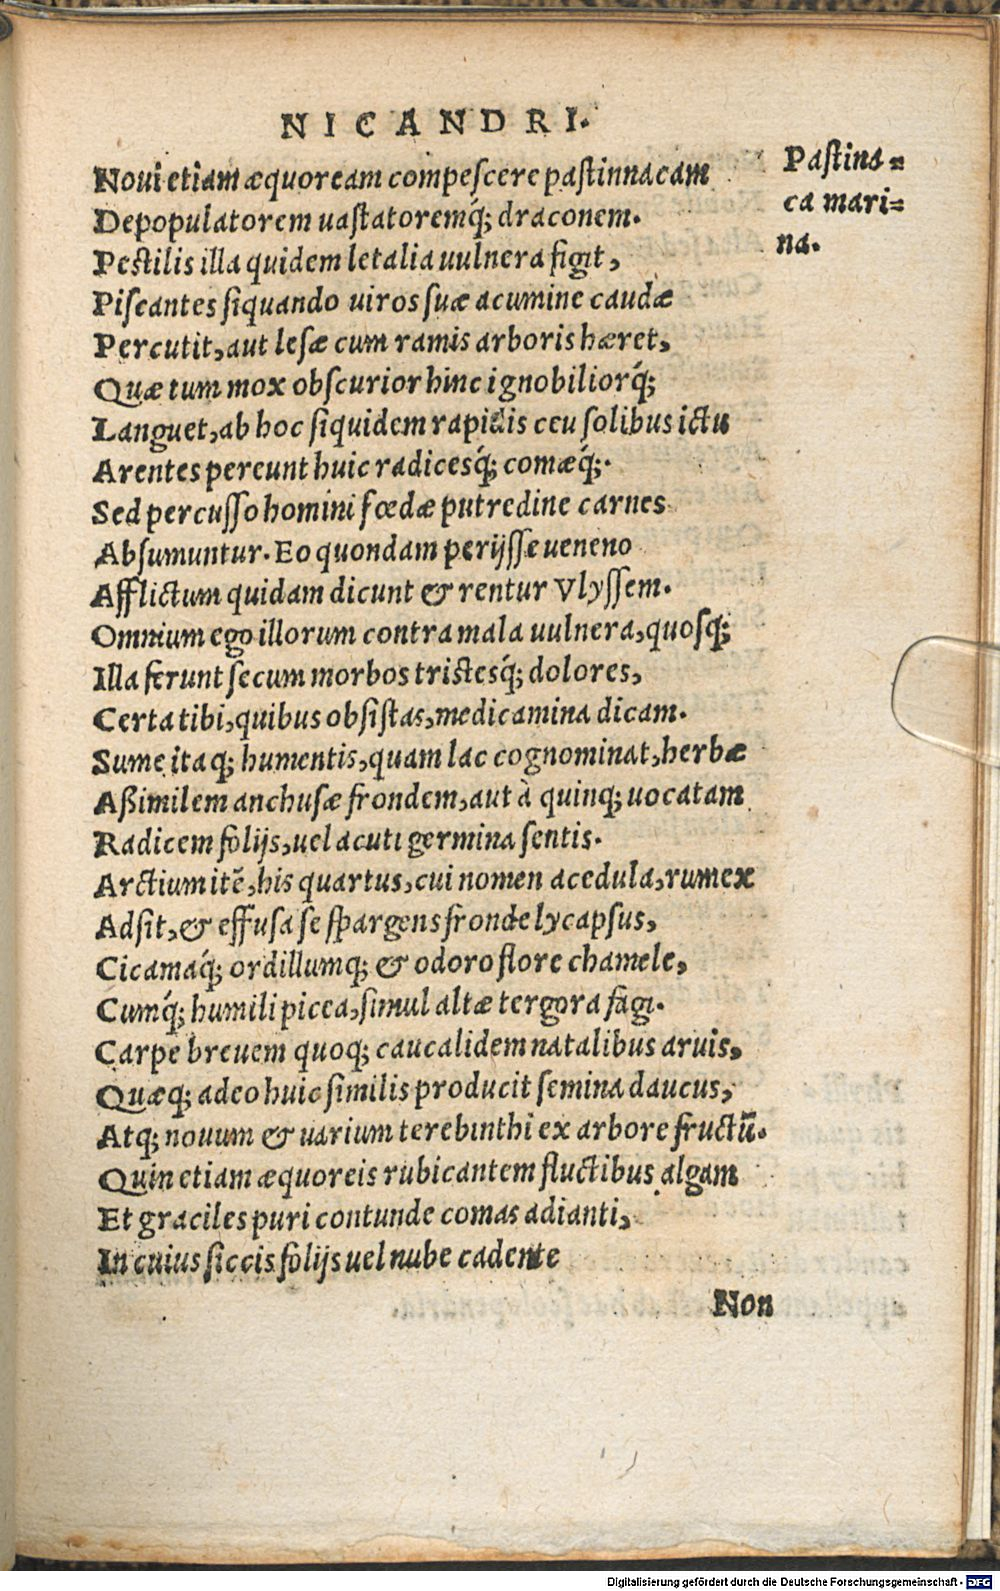 NICANDRI.
Noui etiam æquoream compescere pastinnacam
Pastina=
ca mari=
na.
Depopulatorem uastatoremq́; draconem.
Pestilis illa quidem letalia uulnera figit,
Piscantes siquando uiros suæ acumine caudæ
Percutit, aut lesæ cum ramis arboris hæret,
Quæ tum mox obscurior hinc ignobiliorq́;
Languet, ab hoc siquidem rapidis ceu solibus ictu
Arentes pereunt huic radicesq́; comæq́;.
Sed percusso homini fœdæ putredine carnes
Absumuntur. Eo quondam perijsse ueneno
Afflictum quidam dicunt & rentur Vlyssem.
Omnium ego illorum contra mala uulnera, quosq;
Illa ferunt secum morbos tristesq́; dolores,
Certa tibi, quibus obsistas, medicamina dicam.
Sume itaq; humentis, quam lac cognominat, herbæ
Aßimilem anchusæ frondem, aut à quinq; uocatam
Radicem folijs, uel acuti germina sentis.
Arctium itē, his quartus, cui nomen acedula, rumex
Adsit, & effusa se spargens fronde lycapsus,
Cicamaq́; ordillumq; & odoro flore chamele,
Cumq́; humili picea, simul altæ tergora fagi.
Carpe breuem quoq; caucalidem natalibus aruis,
Quæq; adeo huic similis producit semina daucus,
Atq; nouum & uarium terebinthi ex arbore fructū.
Quin etiam æquoreis rubicantem fluctibus algam
Et graciles puri contunde comas adianti,
In cuius siccis folijs uel nube cadente
Non
Digitalisierung gefördert durch die Deutsche Forschungsgemeinschaft - DFG